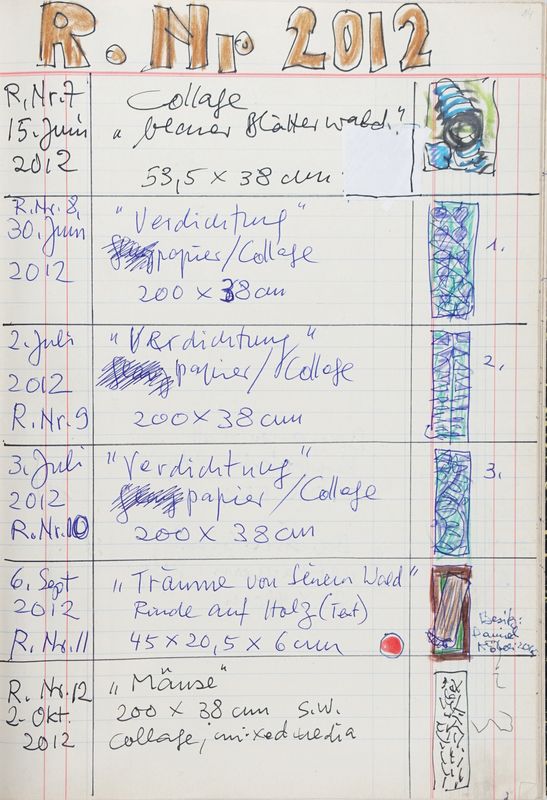 R. Nr 2012
R. Nr. 7
15. Juni
2012
Collage
"kleiner Blätterwald"
53,5 x 38 cm
R. Nr. 8,
30. Juni
2012
"Verdichtung"
papier/Collage
200 x 38 cm
1.
2. Juli
2012
R. Nr. 9
"Verdichtung"
papier/Collage
200 x 38 cm
2.
3. Juli
2012
R. Nr. 10
"Verdichtung"
papier/Collage
200 x 38 cm
3.
6. Sept
2012
R. Nr. 11
"Träume von Wald"
Rinde auf Holz (Text)
45 x 20,5 x 6 cm
Besitz:
Daniel
R. Nr. 12
2. Okt.
2012
"Mäuse"
200 x 38 cm s.w.
Collage, mixed media